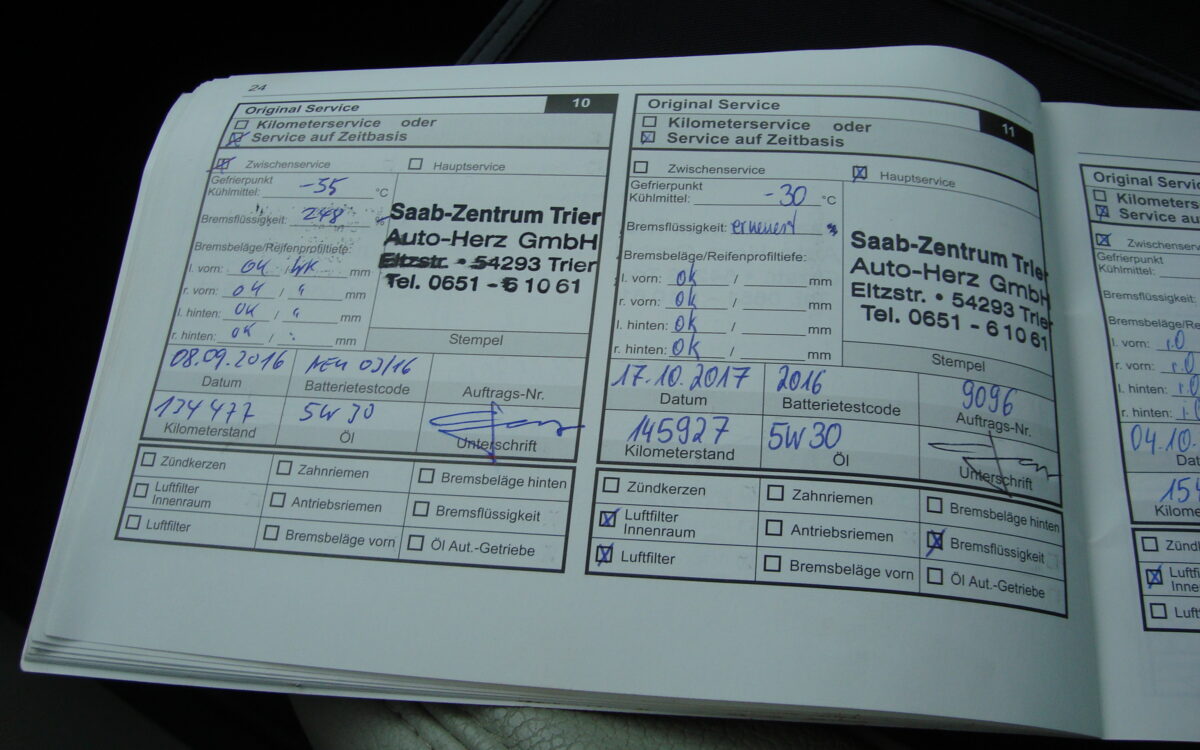 24
Original Service 10
Kilometerservice oder
Service auf Zeitbasis
Zwischenservice Hauptservice
Gefrierpunkt
Kühlmittel: -35 °C
Bremsflüssigkeit: 248 %
Bremsbeläge/Reifenprofiltiefe:
l. vorn: OK / WK mm
r. vorn: OK / " mm
l. hinten: OK / " mm
r. hinten: OK / mm
Saab-Zentrum Trier
Auto-Herz GmbH
Eltzstr. • 54293 Trier
Tel. 0651 - 6 10 61
Stempel
08.09.2016 NEU 03/16
Datum Batterietestcode Auftrags-Nr.
134 477 5W30
Kilometerstand Öl Unterschrift
Zündkerzen Zahnriemen Bremsbeläge hinten
Luftfilter
Innenraum Antriebsriemen Bremsflüssigkeit
Luftfilter Bremsbeläge vorn Öl Aut.-Getriebe
Original Service 11
Kilometerservice oder
Service auf Zeitbasis
Zwischenservice Hauptservice
Gefrierpunkt
Kühlmittel: -30 °C
Bremsflüssigkeit: erneuert %
Bremsbeläge/Reifenprofiltiefe:
l. vorn: OK / mm
r. vorn: OK / mm
l. hinten: OK / mm
r. hinten: OK / mm
Saab-Zentrum Trier
Auto-Herz GmbH
Eltzstr. • 54293 Trier
Tel. 0651 - 6 10 61
Stempel
17.10.2017 2016 9096
Datum Batterietestcode Auftrags-Nr.
145927 5W30
Kilometerstand Öl Unterschrift
Zündkerzen Zahnriemen Bremsbeläge hinten
Luftfilter
Innenraum Antriebsriemen Bremsflüssigkeit
Luftfilter Bremsbeläge vorn Öl Aut.-Getriebe
Original Service
Kilometers
Service au
Zwischenservice
Gefrierpunkt
Kühlmittel:
Bremsflüssigkeit:
Bremsbeläge/Re
l. vorn: i.O
r. vorn: i.O
l. hinten: i.O
r. hinten: i.O
04.10
Dat
154
Kilome
Zünd
Luftfi
Inne
Luft